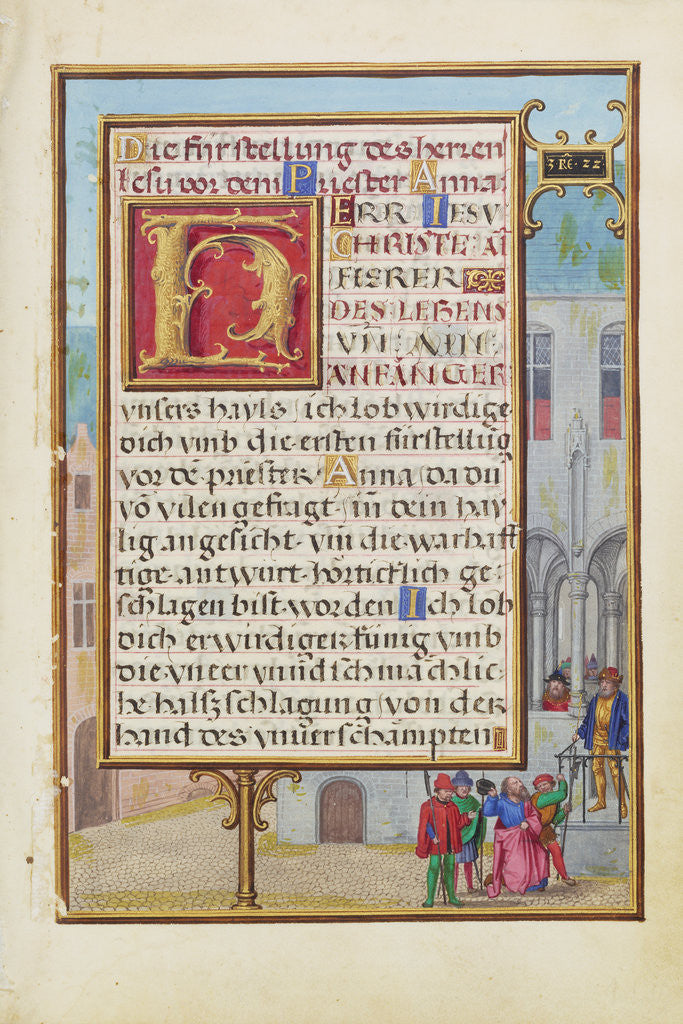 Die fürstellung des herren
Iesu vor dem Priester Anna.
HERR IESV
CHRISTE AĪ
FIERER
DES LEBENS
VN̄ AIN
ANFĀNGER
vnsers hayls / ich lob wirdige
dich vmb die ersten fürstellūg
vor dē priester Anna / da du
vō vilen gefragt · in̄ dein hay
lig angesicht · vm̄ die warhafft
tige antwurt · hörticklich ge-
schlagen bist worden Ich lob
dich erwirdiger künig vmb
die vneer vnnd schmächlic-
he halszschlagung / von der
hand des vnuerschampten